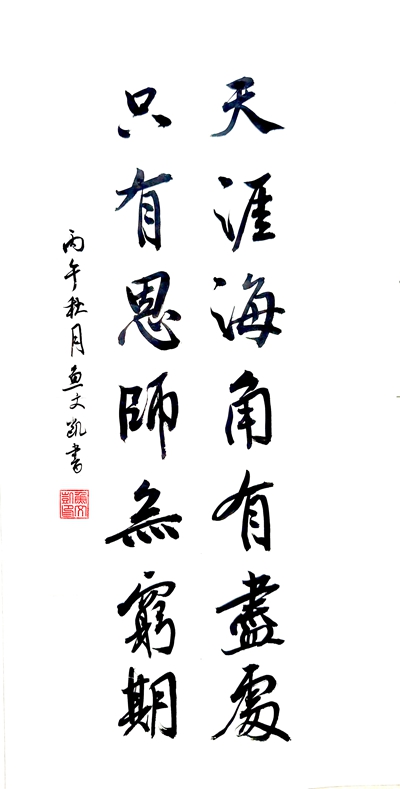 天涯海角有盡處
只有恩師無窮期
丙午秋月魚文凱書